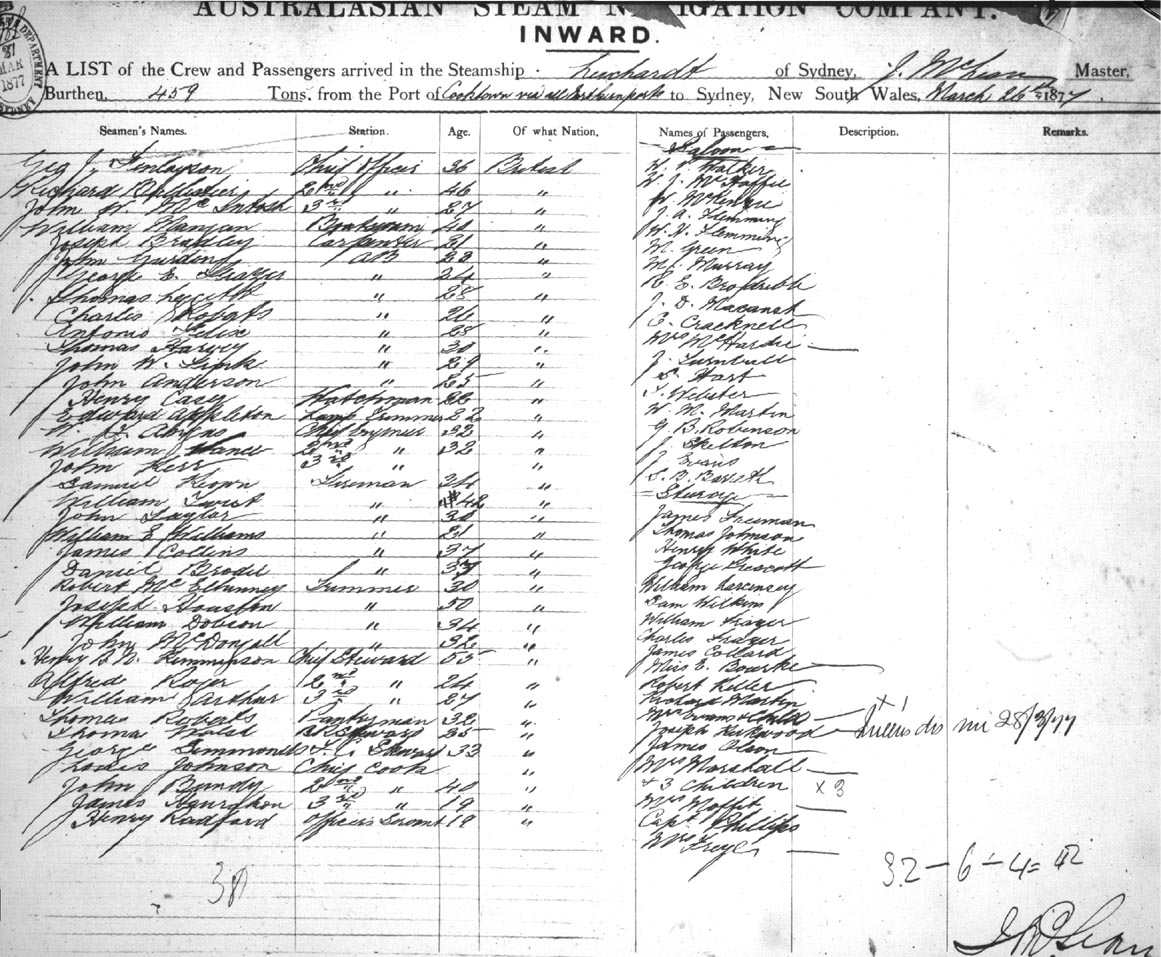 AUSTRALASIAN STEAM NAVIGATION COMPANY.
INWARD.
DEPARTMENT
MAR
1877
A LIST of the Crew and Passengers arrived in the Steamship Leichardt of Sydney, J. McLean Master,
Burthen, 459 Tons, from the Port of Cooktown via all Northern ports to Sydney, New South Wales, March 26th 1877.
Seamen's Names. Station. Age. Of what Nation. Names of Passengers. Description. Remarks.
Saloon
Geo J. Finlayson Chief Officer 36 British
Richard 2nd " 46 "
John W. McIntosh 3rd " 27 "
William Mangan 40 "
Joseph Bradley Carpenter 21 "
John AB 23 "
George E. Frazer " 24 "
Thomas " 28 "
Charles Roberts " 26 "
Antonio Felix " 28 "
Thomas Harvey " 30 "
John W. " 29 "
John Anderson " 25 "
Henry Casey Watchman 22 "
Edward Appleton Lamp Trimmer 22 "
Chief 32 "
William Hance 2nd " 32 "
John Kerr 3rd " "
Samuel Keown Fireman 34 "
William Twist " 42 "
John Taylor " 38 "
William E. Williams " 21 "
James Collins " 37 "
Daniel Brodie " 37 "
Robert McElhinney Trimmer 30 "
Joseph Houston " 50 "
William Dobson " 34 "
John McDougall " 32 "
Henry B. N. Chief Steward 55 "
Alfred Roger 2nd " 24 "
William Arthur 3rd " 27 "
Thomas Roberts Pantryman 32 "
Thomas Walsh Steward 25 "
George Simmonells Steward 33 "
Louis Johnson Chief Cook "
John Bundy 2nd " 40 "
James 3rd " 19 "
Henry Radford Officers Servant 19 "
38
Walker
W. J. McHaffie
W. McKenzie
J. A. Flemming
W. V. Flemming
M. Green
M. Murray
R. E. Brodribb
J. D. Macansh
E. Cracknell
Mrs McHardie
J. Turnbull
S. Hart
T. Webster
W. M. Martin
G. B. Robinson
J. Skelton
J. Evans
S. B. Barrett
Steerage
James Freeman
Thomas Johnson
Henry White
George Prescott
William
Sam Wilkins
William Frazer
Charles Frazer
James Collard
Miss E. Bourke
Robert Keller
Richard Martin
Mrs Evans & Child x 1
Joseph Kirkwood 28/3/77
James Olson
Mrs Marshall
& 3 Children x 3
Mrs Moffit
Capt Phillips
Mrs
32 - 6 - 4 = 42
J McLean